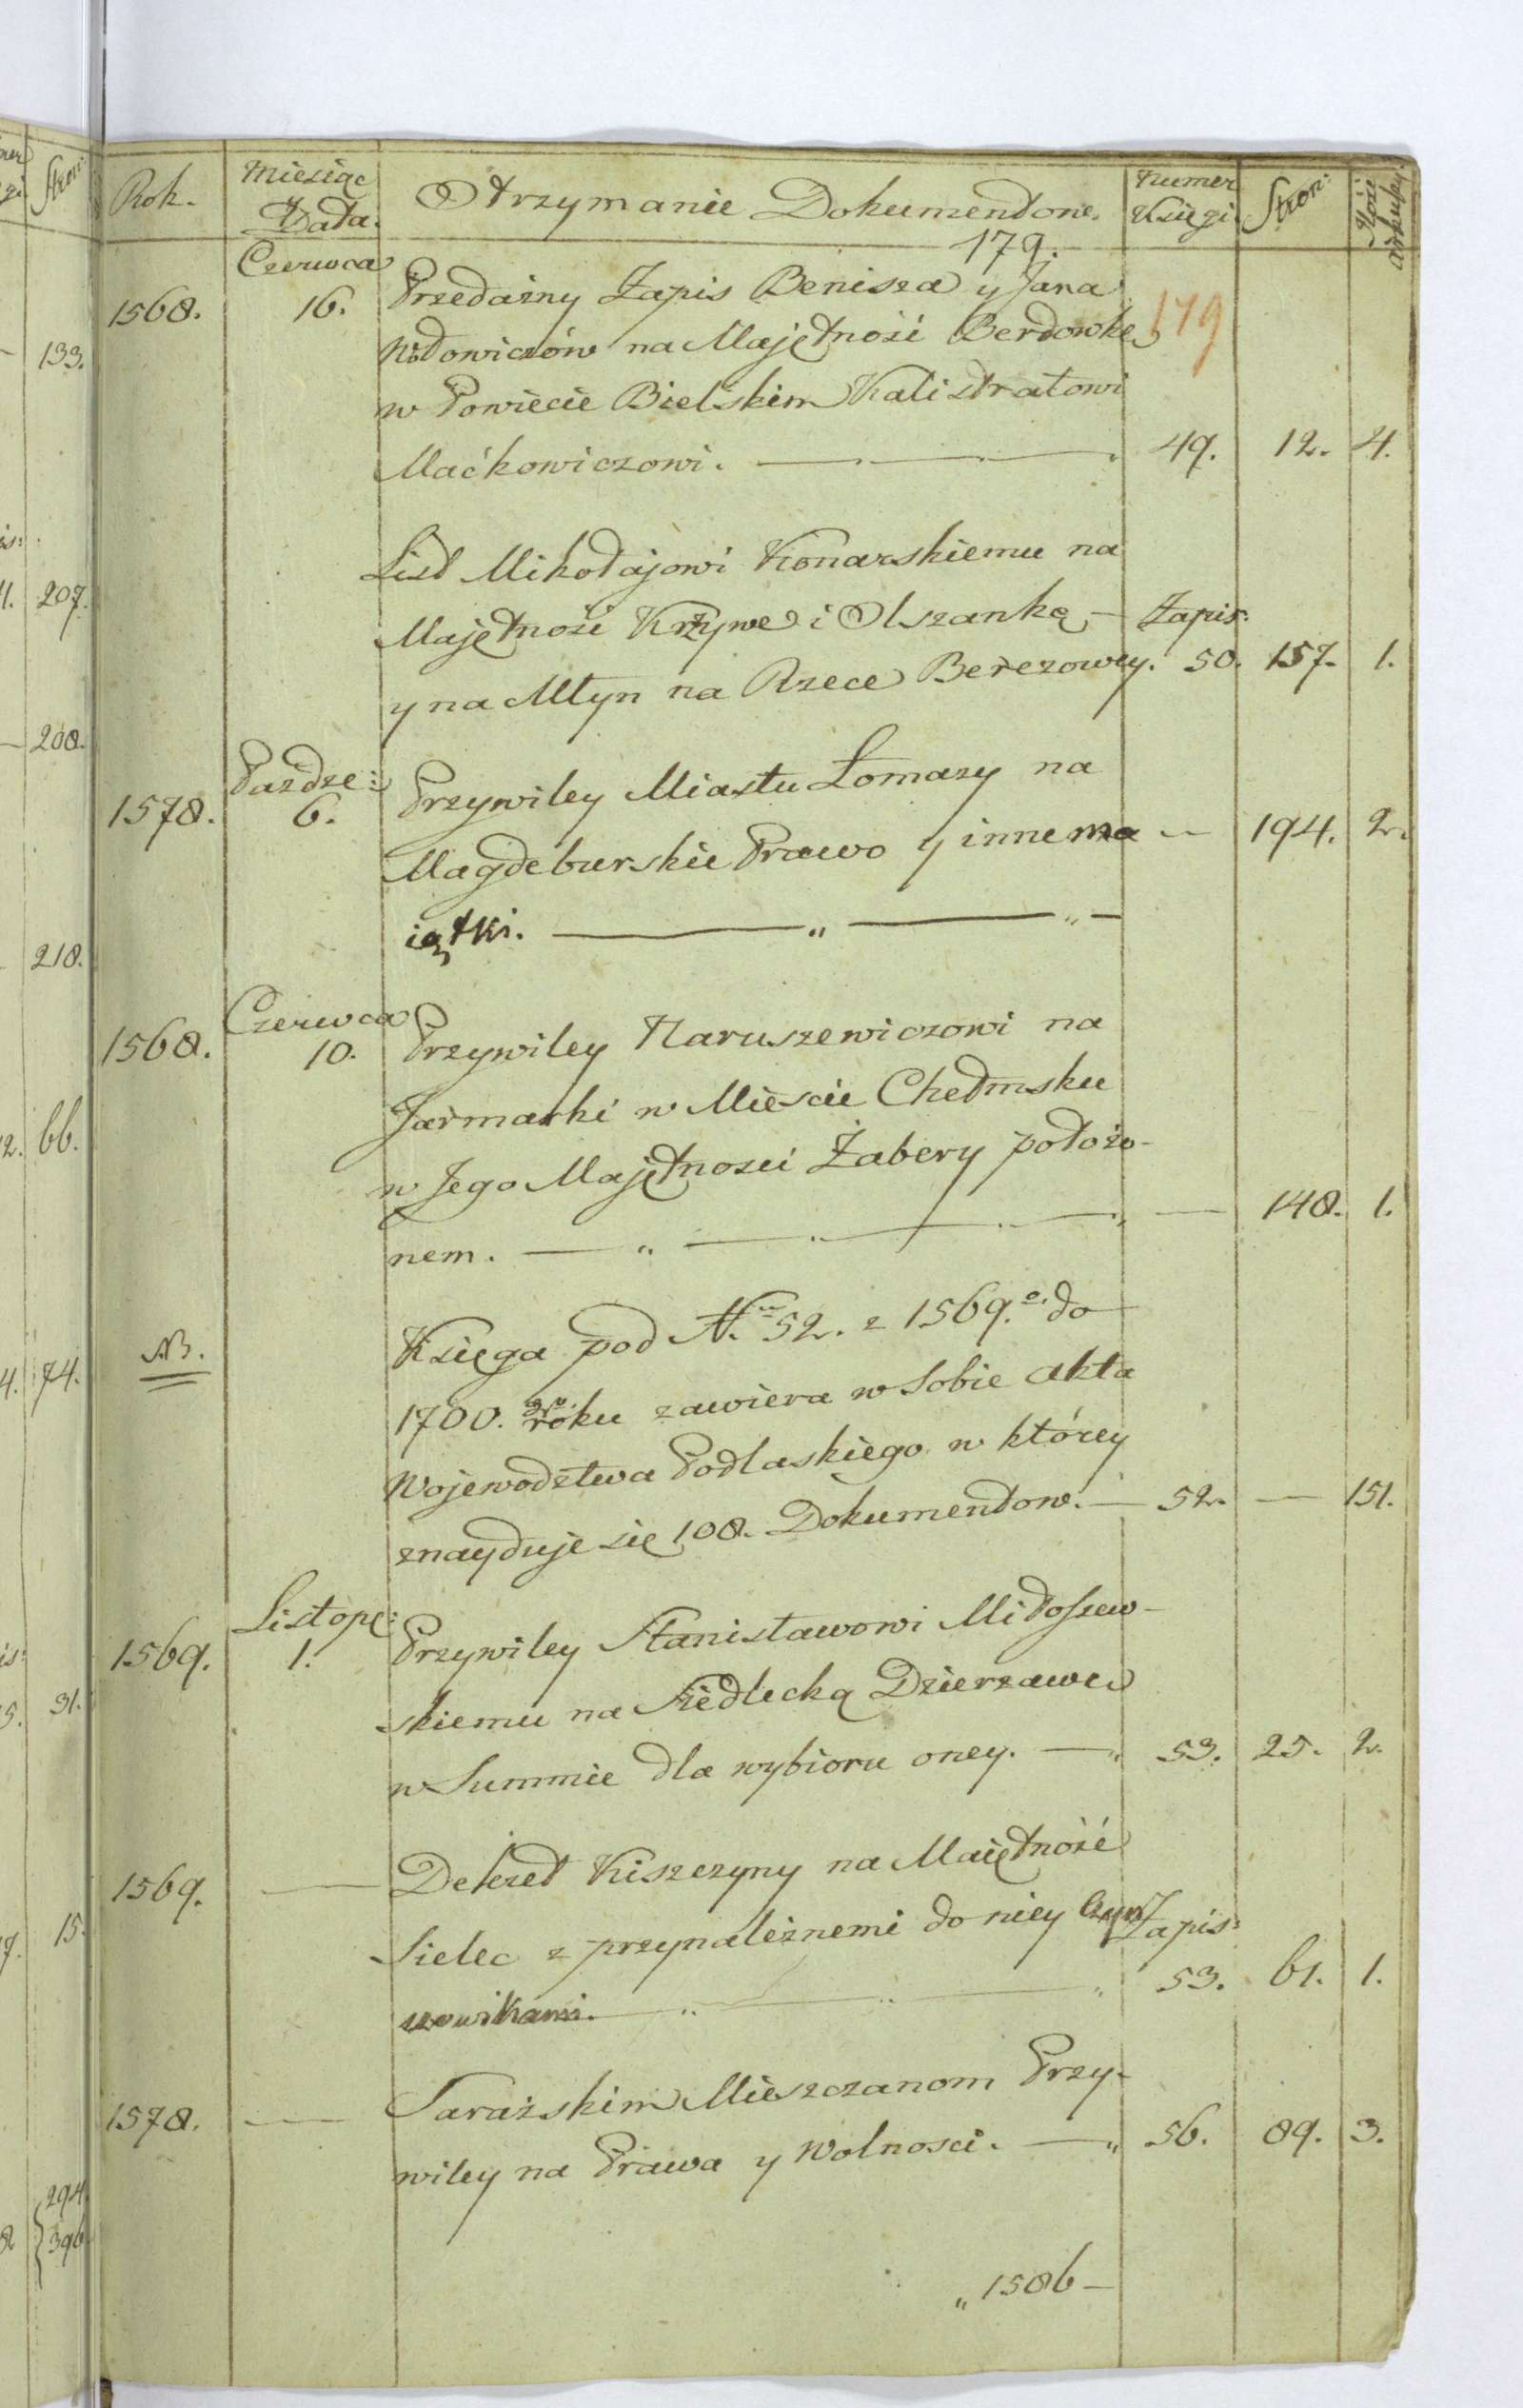 Rok. Miesiąc Data. Otrzymanie Dokumentow. Numer Księgi Stron: Ilość arkuszy.
179.
179
1568. Czerwca 16. Przedażny Zapis Benisza y Jana
Wdowiczów na Majętność Berdowkę
w Powiecie Bielskim Kalistratowi
Maćkowiczowi. 49. 12. 4.
List Mikołajowi Konarskiemu na
Majętność Krzywe i Olszankę Zapis:
y na Młyn na Rzece Berezowey. 50. 157. 1.
1578. Pazdze: 6. Przywiley Miastu Łomazy na
Magdeburskie Prawo y inne ma — 194. 2.
iątki.
1568. Czerwca 10. Przywiley Naruszewiczowi na
Jarmarki w Miescie Chełmsku
w Jego Majętnosci Żabery położo-
nem. — 148. 1.
NB. Księga pod N. 52. z 1569.o do
1700.go roku zawiera w Sobie akta
Wojewodztwa Podlaskiego w którey
znayduje się 108. Dokumentow. — 52. — 151.
1569. Listopa: 1. Przywiley Stanisławowi Miłoszew-
skiemu na Siedlecką Dzierzawę
w Summie dla wybioru oney. — 53. 25. 2.
1569. — Dekret Kiszczyny na Maiętność
Sielec z przynależnemi do niey Zapis:
53. 61. 1.
1578. — Surażskim Mieszczanom Przy-
wiley na Prawa y Wolnosci. — 56. 89. 3.
„1586 —
133.
207.
208.
218.
66.
74.
31.
15.
294.
396